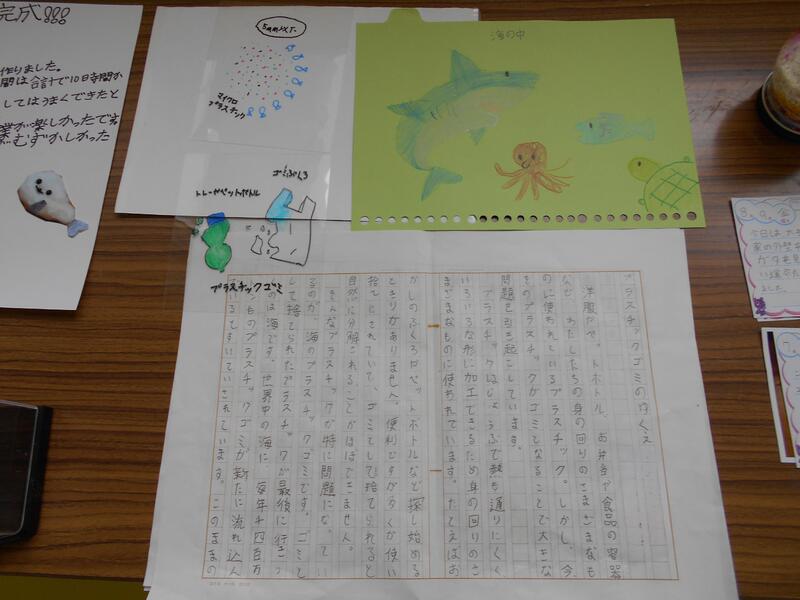 完成!!!
作りました。
間は合計で10日時間か
してはうまくできたと
業が楽しかったです
むずかしかった
5mm以下
マイクロ
プラスチック
海の中
ゴミぶくろ
トレーやペットボトル
プラスチックゴミ
プラスチックゴミのゆくえ
洋服かペットボトル、お弁当や食品の容器
など、わたしたちの身の回りのさまざまなも
のに使われているプラスチック。しかし、今、
そのプラスチックがゴミとなることで大きな
問題を引き起こしています。
プラスチックはじょうぶで熱も通りにくく
いろいろな形に加工できるため身の回りのさ
まざまなものに使われています。たとえばお
かしのふくろやペットボトルなど探し始める
ときりがありません。便利ですが多くが使い
捨てとされていて、ゴミとして捨てられると
自然に分解されることがほぼできません。
そんなプラスチックが特に問題になってい
るのが、海のプラスチックゴミです。ゴミと
して捨てられたプラスチックが最後に行きつ
くのは海です。世界中の海に、毎年千四百万
トンものプラスチックゴミが新たに流れ込ん
でいるとすいていされています。このままの
今日は
家の外壁